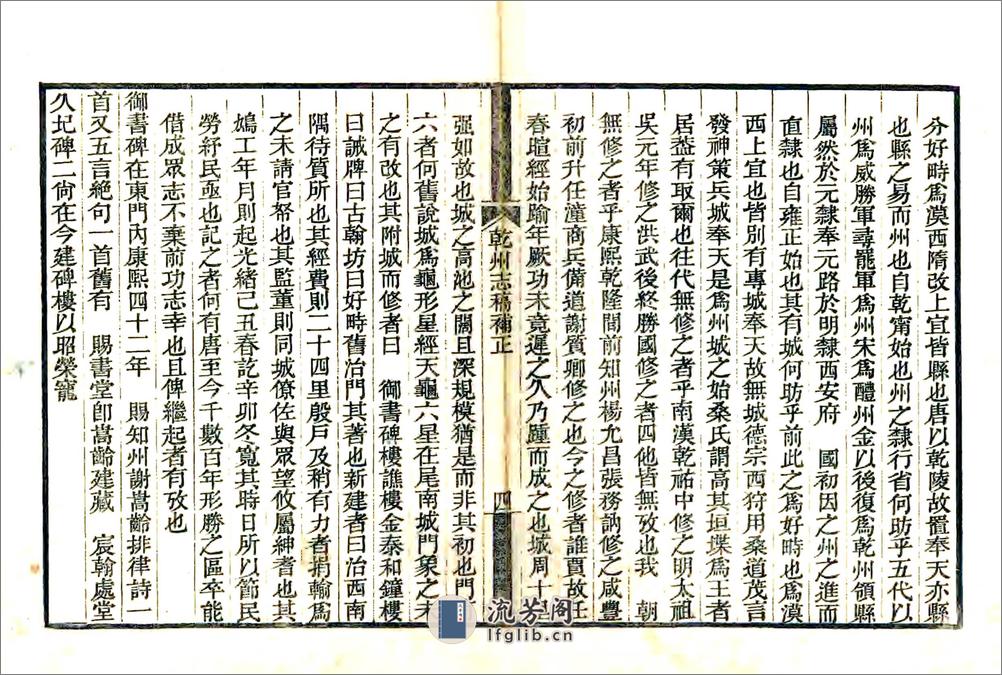 分好畤爲漠西隋改上宜皆縣也唐以乾陵故置奉天亦縣
也縣之易而州也自乾甯始也州之隸行省何昉乎五代以
州爲威勝軍尋罷軍爲州宋爲醴州金以後復爲乾州領縣
屬然於元隸奉元路於明隸西安府　國初因之州之進而
直隸也自雍正始也其有城何昉乎前此之爲好畤也爲漠
西上宜也皆別有專城奉天故無城德宗西狩用桑道茂言
發神策兵城奉天是爲州城之始桑氏謂高其垣堞爲王者
居盍有取爾也往代無修之者乎南漢乾祐中修之明太祖
吳元年修之洪武後終勝國修之者四他皆無攷也我　朝
無修之者乎康熙乾隆間前知州楊允昌張務訥修之咸豐
初前升任潼商兵備道謝質卿修之也今之修者誰賈故任
春暄經始踰年厥功未竟遲之久乃踵而成之也城周十里
乾州志稿補正
四
強如故也城之高池之闊且深規模猶是而非其初也門
六者何舊說城爲龜形星經天龜六星在尾南城門象之未
之有改也其附城而修者曰　御書碑樓譙樓金泰和鐘樓
曰誡牌曰古翰坊曰好畤舊治門其著也新建者曰治西南
隅待質所也其經費則二十四里殷戶及稍有力者捐輸爲
之未請官帑也其監董則同城僚佐與眾望攸屬紳耆也其
鳩工年月則起光緒己丑春訖辛卯冬寬其時日所以節民
勞紓民亟也記之者何有唐至今千數百年形勝之區卒能
借成眾志不棄前功志幸也且俾繼起者有攷也
御書碑在東門內康熙四十二年　賜知州謝嵩齡排律詩一
首又五言絕句一首舊有　賜書堂卽嵩齡建藏　宸翰處堂
久圮碑二尙在今建碑樓以昭榮寵
流芳阁
lfglib.cn